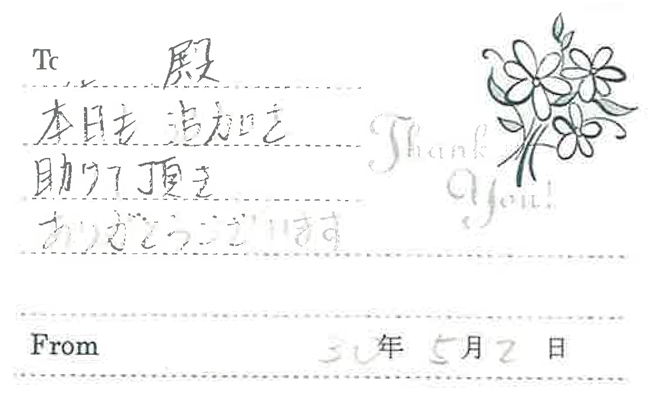 To 殿
本日も追加を
助けて頂き
ありがとうございます
Thank You!
From 30年 5月 2日